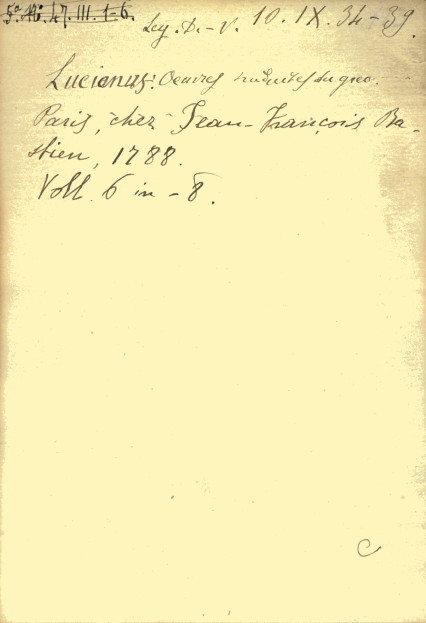 5ª. Nº. 47. III. 1-6.
Leg. D.-V. 10. IX. 34-39.
Lucianus: Oeuvres traduites du grec.
Paris, chez Jean-François Ba-
stien, 1788.
Voll. 6 in-8.
C